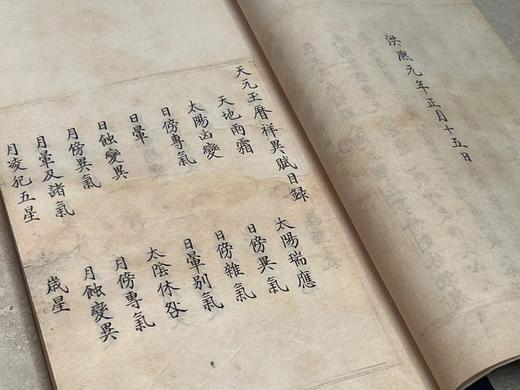 洪熙元年正月十五日
天元玉曆祥異賦目録
天地雨霜 太陽瑞應
太陽凶變 日傍異氣
日傍專氣 日傍雜氣
日暈 日暈别氣
日蝕變異 太陰休咎
月傍異氣 月傍專氣
月暈及諸氣 月蝕變異
月凌犯五星 歲星